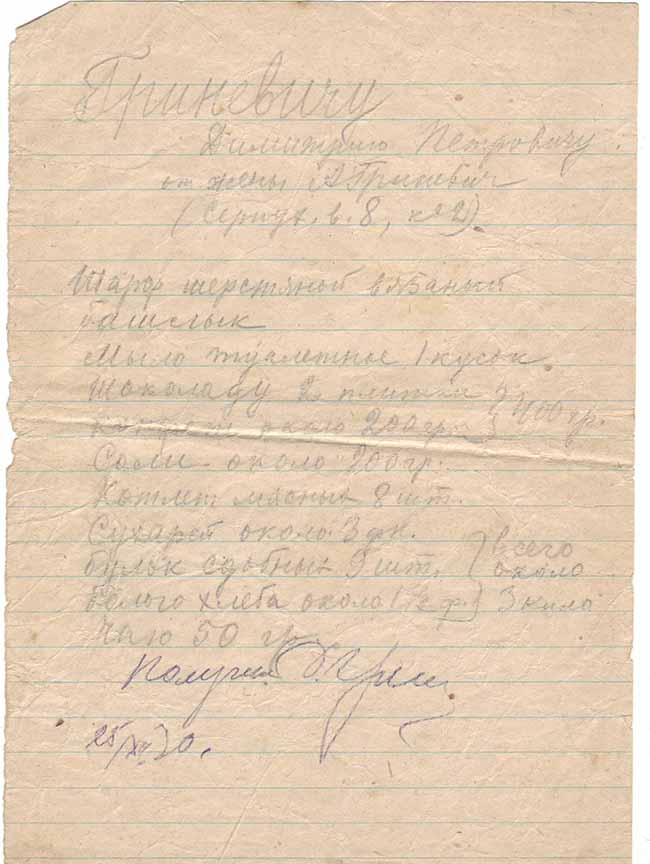 Гриневичу
Димитрию Петровичу.
от жены А Гриневич
(Серпух. в. 8, кв 2)
Шарф шерстяной вязаный
башлык
Мыло туалетное 1 кусок
Шоколаду 2 плитки } 400 гр.
конфет около 200 гр.
Соли около 200 гр.
Котлет мясных 8 шт.
Сухарей около 3 фн.
булок сдобных 9 шт. } всего около 3 кило
белого хлеба около 1 1/2 ф.
Чаю 50 гр.
Получил Д. Грин
25/XII 30.